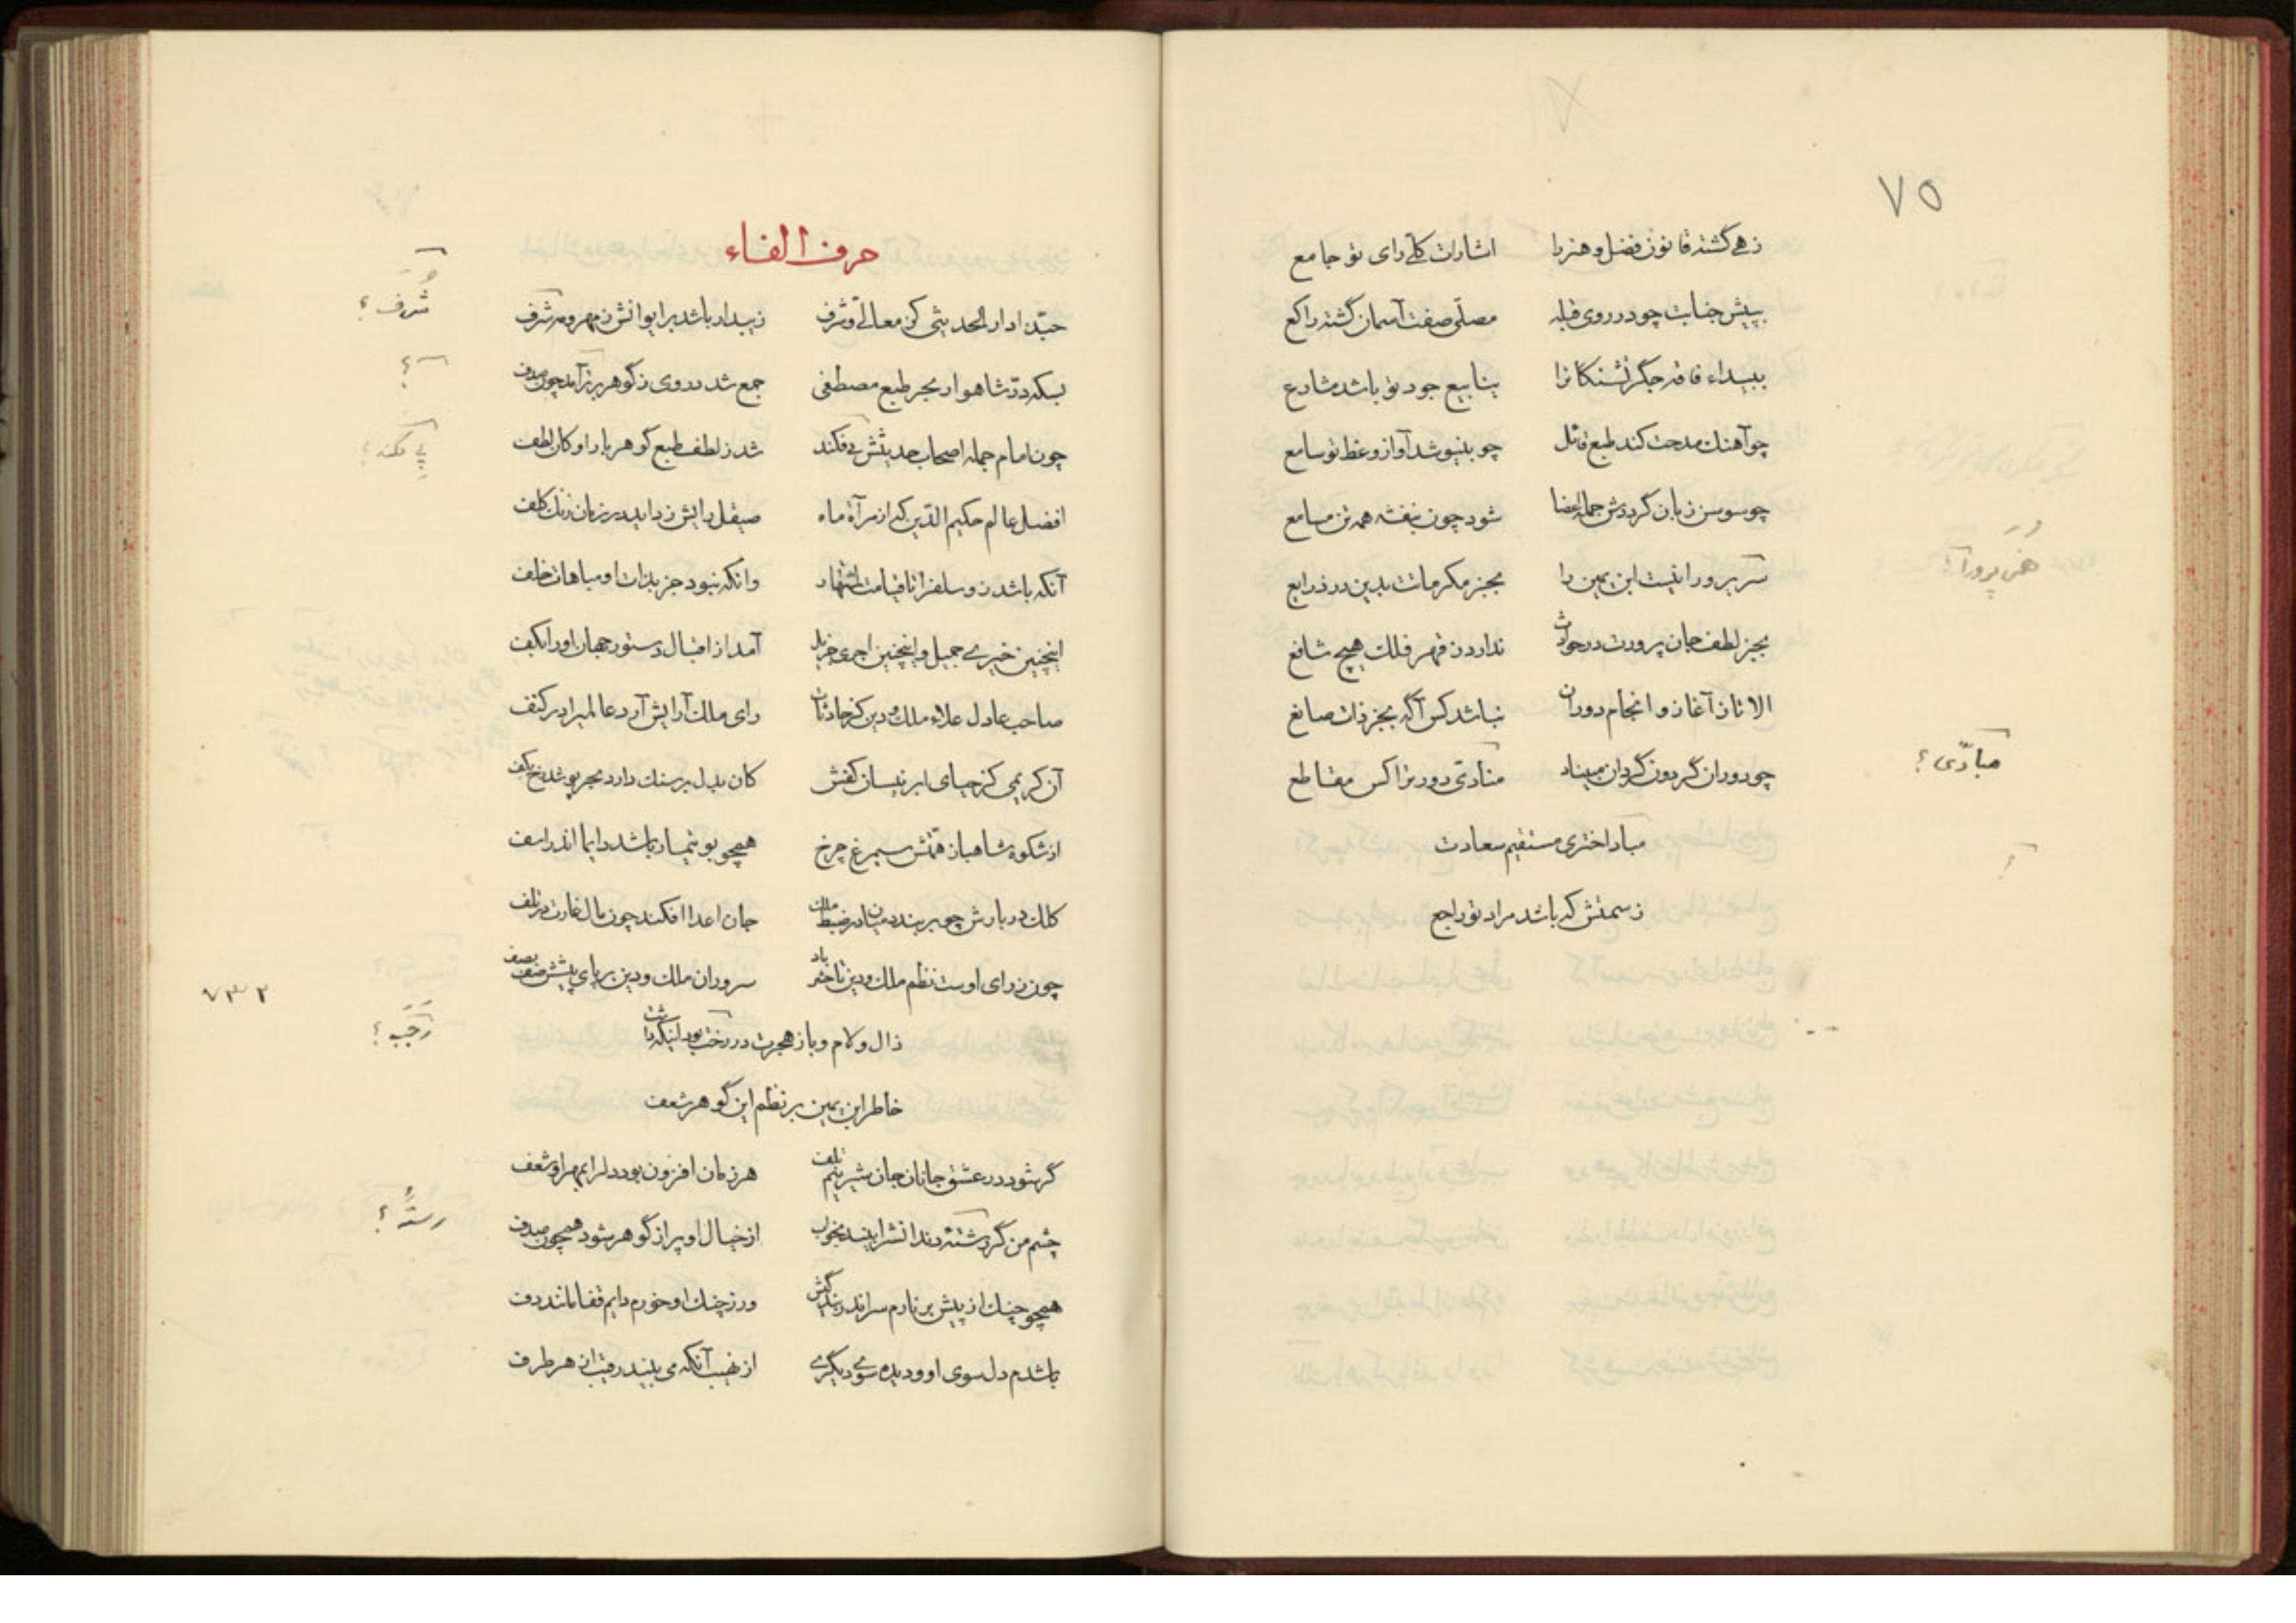 ۷۵
زهی گشته قانون فضل و هنر را اشارات کلک رای تو جامع
بپیش جنابت چو در روی قبله مصلّی صفت آسمان گشته راکع
ببیداء فاقه جگر تشنگانرا ینابیع جود تو باشد مشارع
چو آهنك مدحت کند طبع قائل چو بنیوشد آواز وعظ تو سامع
چو سوسن زبان گردش جمله اعضا شود چون بنفشه همه تن مسامع
پرور را نیست ابن یمین را بجز مکرمات بدین در ذرایع
هنر پرورا؟
بجز لطف جان پرورت در حوادث ندارد ز قهر فلك هیچ شافع
الا تا ز آغاز و انجام دوران نباشد کس آگه بجز ذات صانع
چو دوران گردون گردان مبیناد منادیّ دور ترا کس مقاطع
مبادّی؟
مباد اختری مستقیم سعادت
ز سمتش که باشد مراد تو راجع
حرف الفاء
حبّذا دار الحدیثی کز معالیّ و شرف زیبد ار باشد بر ایوانش ز مهر و مه شرف
شُرَف؟
بسکه درّ شاهوار بحر طبع مصطفی جمع شد در وی ز گوهر بر آمد چون صدف
چون امام جمله اصحاب حدیثش پی فکند شد ز لطف طبع گوهر بار او کان لطف
پی فکند؟
افضل عالم حکیم الدّین که از مرآة ماه صیقل رایش زداید در زمان زنك کلف
آنکه باشد زو سلف را تا قیامت اشتهار وانکه نبود جز بذات او مباهات خلف
اینچنین خیری جمیل و اینچنین اجری جزیل آمد از اقبال دستور جهان او را بکف
صاحب عادل علاء ملك و دین کز حادثات رای ملك آرایش آرد عالمی را در کنف
آن کریمی کز حیای ابر نیسان کفش کان بدل بر سنك دارد بحر پی شد بکف
از شکوه شاهباز همّتش سیمرغ چرخ همچو بوتیمار باشد دایما اندر اسف
کلك دربارش چو بر بندد میان در ضبط ملك جان اعدا افکند چون مال غارت در تلف
چون ز رای اوست نظم ملك و دین تا حشر باد سروران ملك و دین بر پای پیشش صف بصف
۷۳۲
ذال و لام و با ز هجرت در رجب بود اینکه داشت
رَجَب؟
خاطر ابن یمین بر نظم این گوهر شعف
گر شود در عشق جانان جان شیرینم تلف هر زمان افزون بود دل را بمهر او شعف
چشم من گر رشتهٔ دندانش را بیند بخواب از خیال او پر از گوهر شود همچون صدف
رستهٔ؟
همچو چنك از پیش بر نارم سر اندر بندگیش ور ز چنك او خورم دایم قفا مانند دف
باشدم دل سوی او و دیده سوی دیگری از نهیب آنکه می بیند رقیب از هر طرف